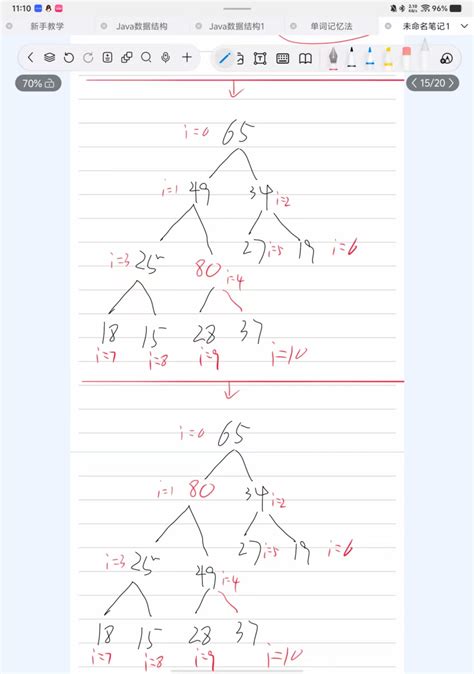 11:10 2.10 KB/s 96%
新手教学 Java数据结构 Java数据结构1 单词记忆法 未命名笔记1
70% 15/20
i=0 65
i=1 49 34 i=2
i=3 25 80 i=4 27 i=5 19 i=6
18 15 28 37
i=7 i=8 i=9 i=10
i=0 65
i=1 80 34 i=2
i=3 25 49 i=4 27 i=5 19 i=6
18 15 28 37
i=7 i=8 i=9 i=10